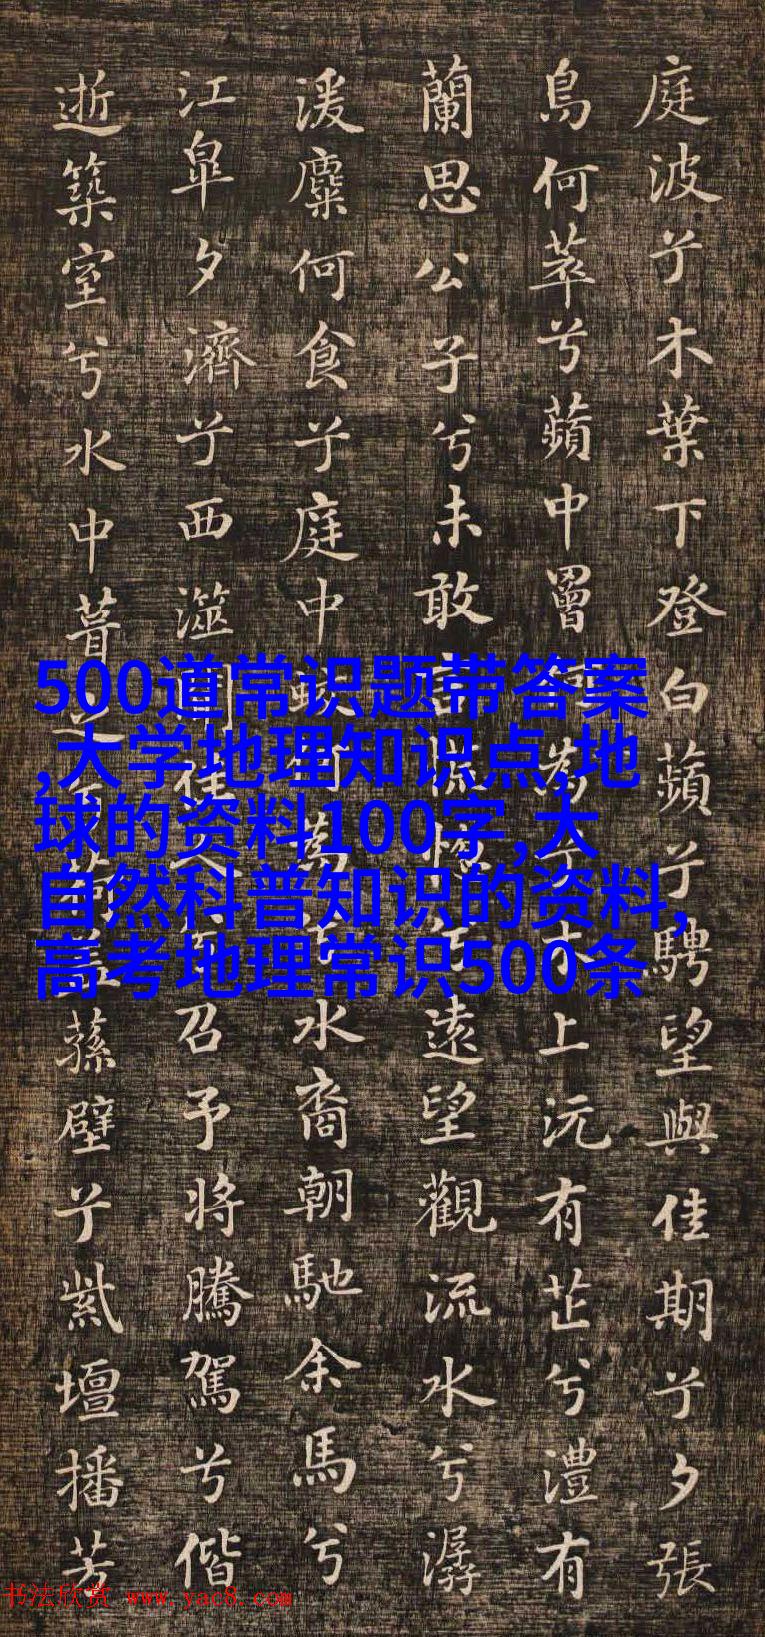 庭波兮木葉下登白蘋兮騁望與佳期兮夕張
鳥何萃兮蘋中罾為兮木上沅有芷兮澧有
蘭思公子兮未敢言慌惚兮遠望觀流水兮潺
湲麋何食兮庭中蛟何為兮水裔朝馳余馬兮
江皋夕濟兮西澨聞佳人召予將騰駕兮偕
逝築室兮水中葺之蓋蓀壁兮紫壇播芳
500道常识题带答案
,大学地理知识点,地
球的资料100字,大
自然科普知识的资料,
高考地理常识500条
书法欣赏 www.yac8.com